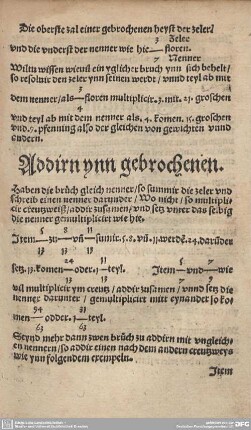 Die oberste zal einer gebrochenen heyst der zeler/
3 Zeler
vnd die vnderst der nenner wie hie — floren.
7 Nenner
Wiltu wissen wieuil ein yglicher bruch ynn sich behelt/
so resoluir den zeler ynn seinen werde/ vnnd teyl ab mit
dem nenner/als — floren multiplicir. 3. mit. 21. groschen
vnd teyl ab mit dem nenner als. 4. komen. 15. groschen
vnd. 9. pfenning also der gleichen von gewichten vnnd
andern.
Addirn ynn gebrochenen.
Haben die brüch gleich nenner/ so summir die zeler vnd
schreib einen nenner darunder/ Wo nicht/ so multipli-
cir creutzweiß/ addir zusamen/ vnd setz vnder das selbig
die nenner gemultiplicirt wie hie.
5 8 13
Item — zu — vñ — sumir. 5. 8. vñ. 11. werdẽ. 24. darüber
13 13
24 11
setz. 13. komen — oder. 1 — teyl. Item — vnd — wie
13 13
vil multiplicir ym creutz/ addir zusamen/ vnnd setz die
nenner darunter/ gemultiplicirt mitt eynander so ko
men — odder. 1 — teyl.
63 63
Seynd mehr dann zwen brüch zu addirn mit vngleich-
en nennern/ so addir einen nach dem andern creutzweys
wie ynn folgendem exempeln.
Item